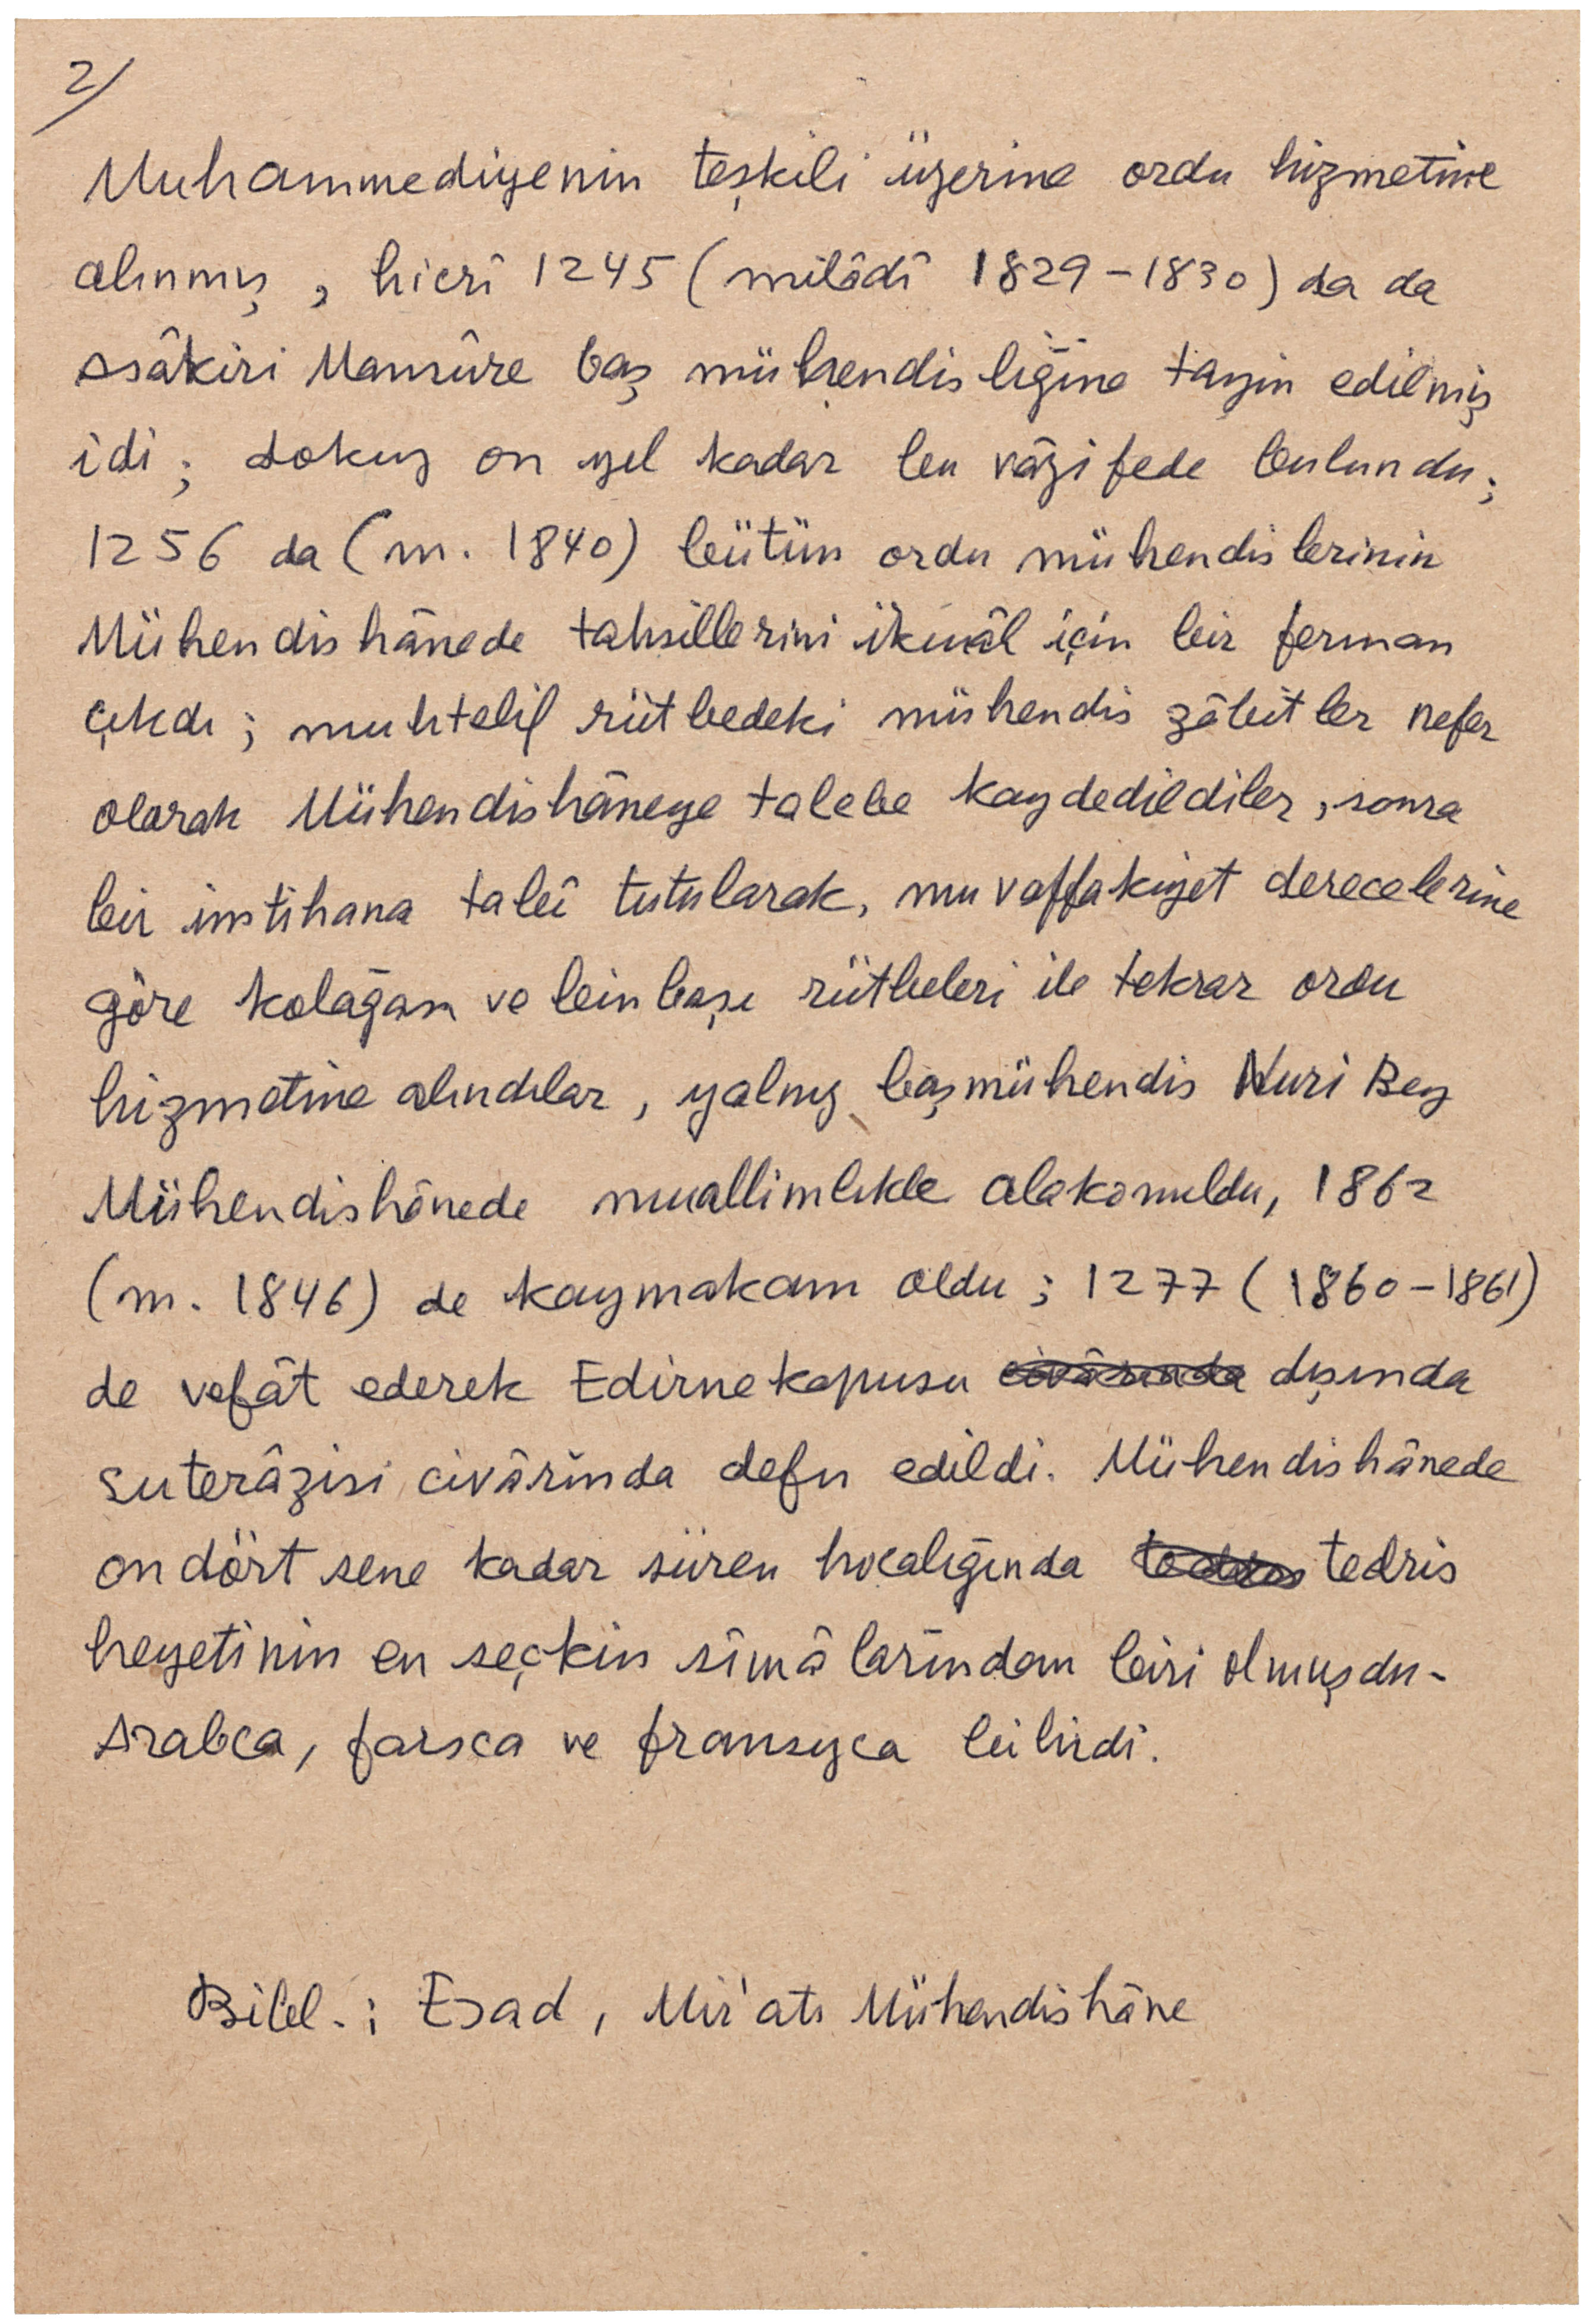 2/
Muhammediyenin teşkili üzerine ordu hizmetine
alınmış, hicrî 1245 (milâdî 1829-1830) da da
Asâkiri Mansûre baş mühendisliğine tayin edilmiş
idi; dokuz on yıl kadar bu vâzifede bulundu;
1256 da (m. 1840) bütün ordu mühendislerinin
Mühendishânede tahsillerini ikmâl için bir ferman
çıkdı; muhtelif rütbedeki mühendis zâbitler nefer
olarak Mühendishâneye talebe kaydedildiler, sonra
bir imtihana tabî tutularak, muvaffakiyet derecelerine
göre kolağası ve binbaşı rütbeleri ile tekrar ordu
hizmetine alındılar, yalnız başmühendis Nuri Bey
Mühendishânede muallimlikle alakonuldu, 1862
(m. 1846) de kaymakam oldu; 1277 (1860-1861)
de vefât ederek Edirnekapusu civârında dışında
suterâzisi civârında defn edildi. Mühendishânede
ondört sene kadar süren hocalığında tedris tedris
heyetinin en seçkin sîmâlarından biri olmuşdu.
Arabca, farsca ve fransızca bilirdi.
Bibl.: Esad, Mir'atı Mühendishâne